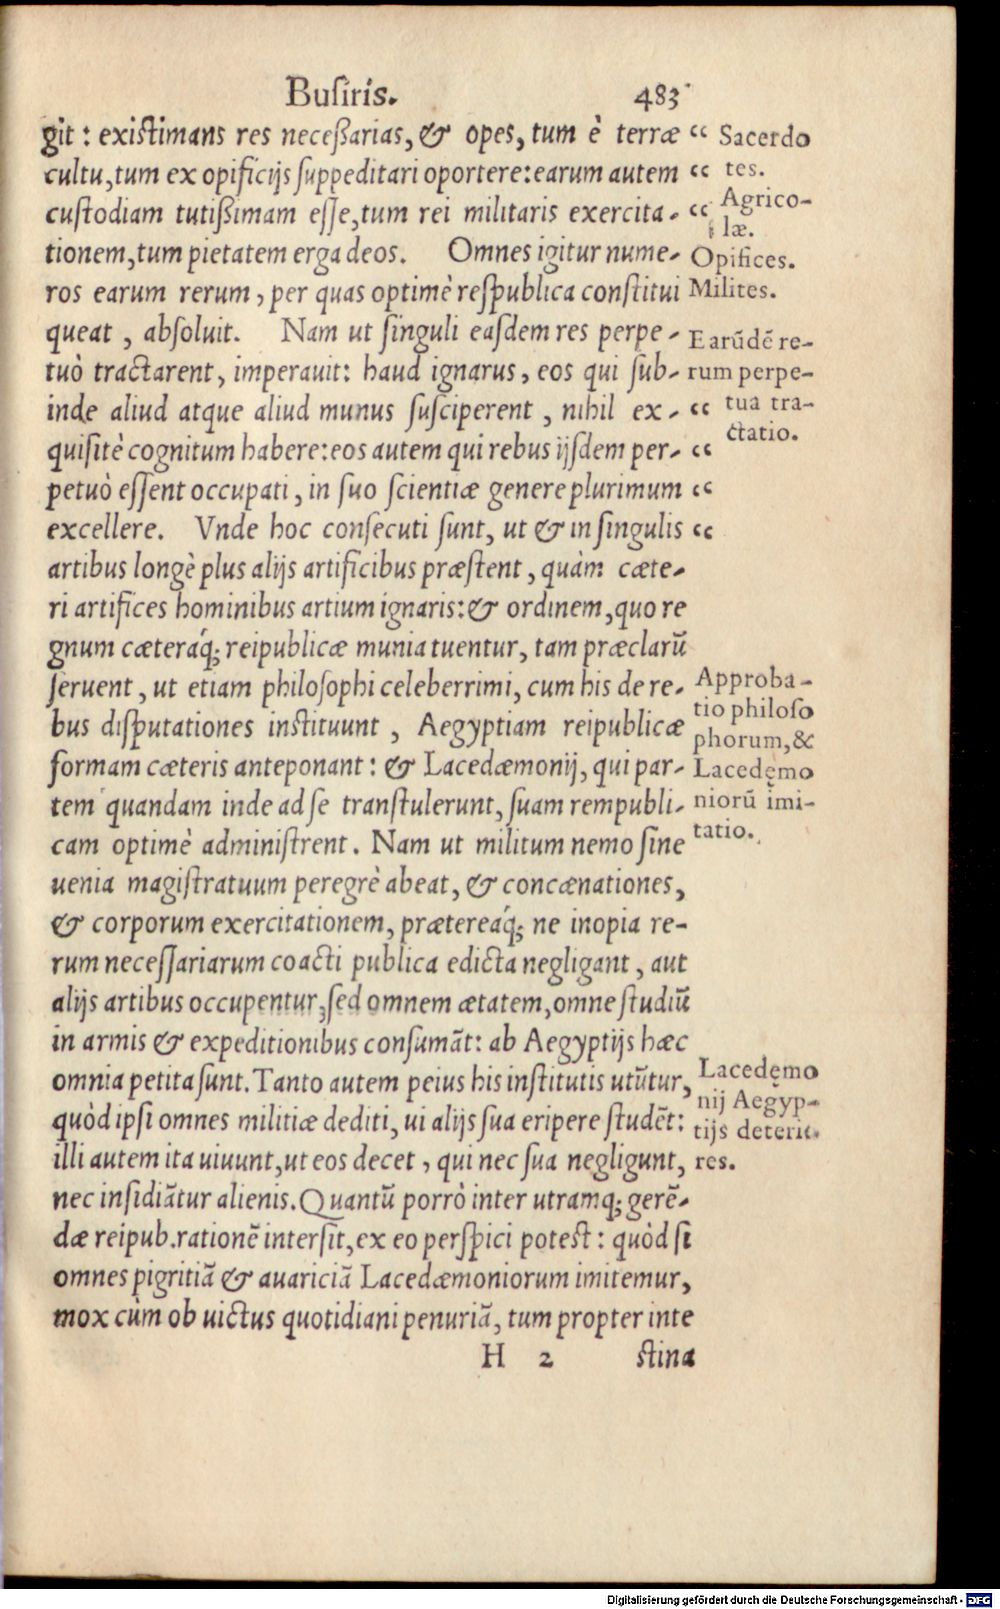 Buſiris. 483
git: existimans res neceßarias, & opes, tum è terræ
cultu, tum ex opificijs ſuppeditari oportere: earum autem
custodiam tutißimam eſſe, tum rei militaris exercita-
tionem, tum pietatem erga deos. Omnes igitur nume-
ros earum rerum, per quas optimè reſpublica conſtitui
queat, abſoluit. Nam ut ſinguli eaſdem res perpe-
tuò tractarent, imperauit: haud ignarus, eos qui ſub-
inde aliud atque aliud munus ſuſciperent, nihil ex-
quiſitè cognitum habere: eos autem qui rebus ijſdem per-
petuò eſſent occupati, in ſuo ſcientiæ genere plurimum
excellere. Vnde hoc conſecuti ſunt, ut & in ſingulis
artibus longè plus alijs artificibus præſtent, quàm cæte-
ri artifices hominibus artium ignaris: & ordinem, quo re
gnum cæteraq́; reipublicæ munia tuentur, tam præclarũ
ſeruent, ut etiam philoſophi celeberrimi, cum his de re-
bus diſputationes inſtituunt, Aegyptiam reipublicæ
formam cæteris anteponant: & Lacedæmonij, qui par-
tem quandam inde ad ſe tranſtulerunt, ſuam rempubli-
cam optimè adminiſtrent. Nam ut militum nemo ſine
uenia magiſtratuum peregrè abeat, & concænationes,
& corporum exercitationem, prætereaq́; ne inopia re-
rum neceſſariarum coacti publica edicta negligant, aut
alijs artibus occupentur, ſed omnem ætatem, omne ſtudiũ
in armis & expeditionibus conſumãt: ab Aegyptijs hæc
omnia petita ſunt. Tanto autem peius his inſtitutis utũtur,
quòd ipſi omnes militiæ dediti, ui alijs ſua eripere ſtudẽt:
illi autem ita uiuunt, ut eos decet, qui nec ſua negligunt,
nec inſidiãtur alienis. Quantũ porrò inter utramq; gerẽ-
dæ reipub. rationẽ interſit, ex eo perſpici potest: quòd ſi
omnes pigritiã & auariciã Lacedæmoniorum imitemur,
mox cùm ob uictus quotidiani penuriã, tum propter inte
H 2 ſtina
“ Sacerdo
“ tes.
“ Agrico-
læ.
Opifices.
Milites.
Earũdẽ re-
rum perpe-
“ tua tra-
ctatio.
“
“
“
Approba-
tio philoſo
phorum, &
Lacedęmo
niorũ imi-
tatio.
Lacedęmo
nij Aegyp-
tijs deterio-
res.
Digitalisierung gefördert durch die Deutsche Forschungsgemeinschaft - DFG